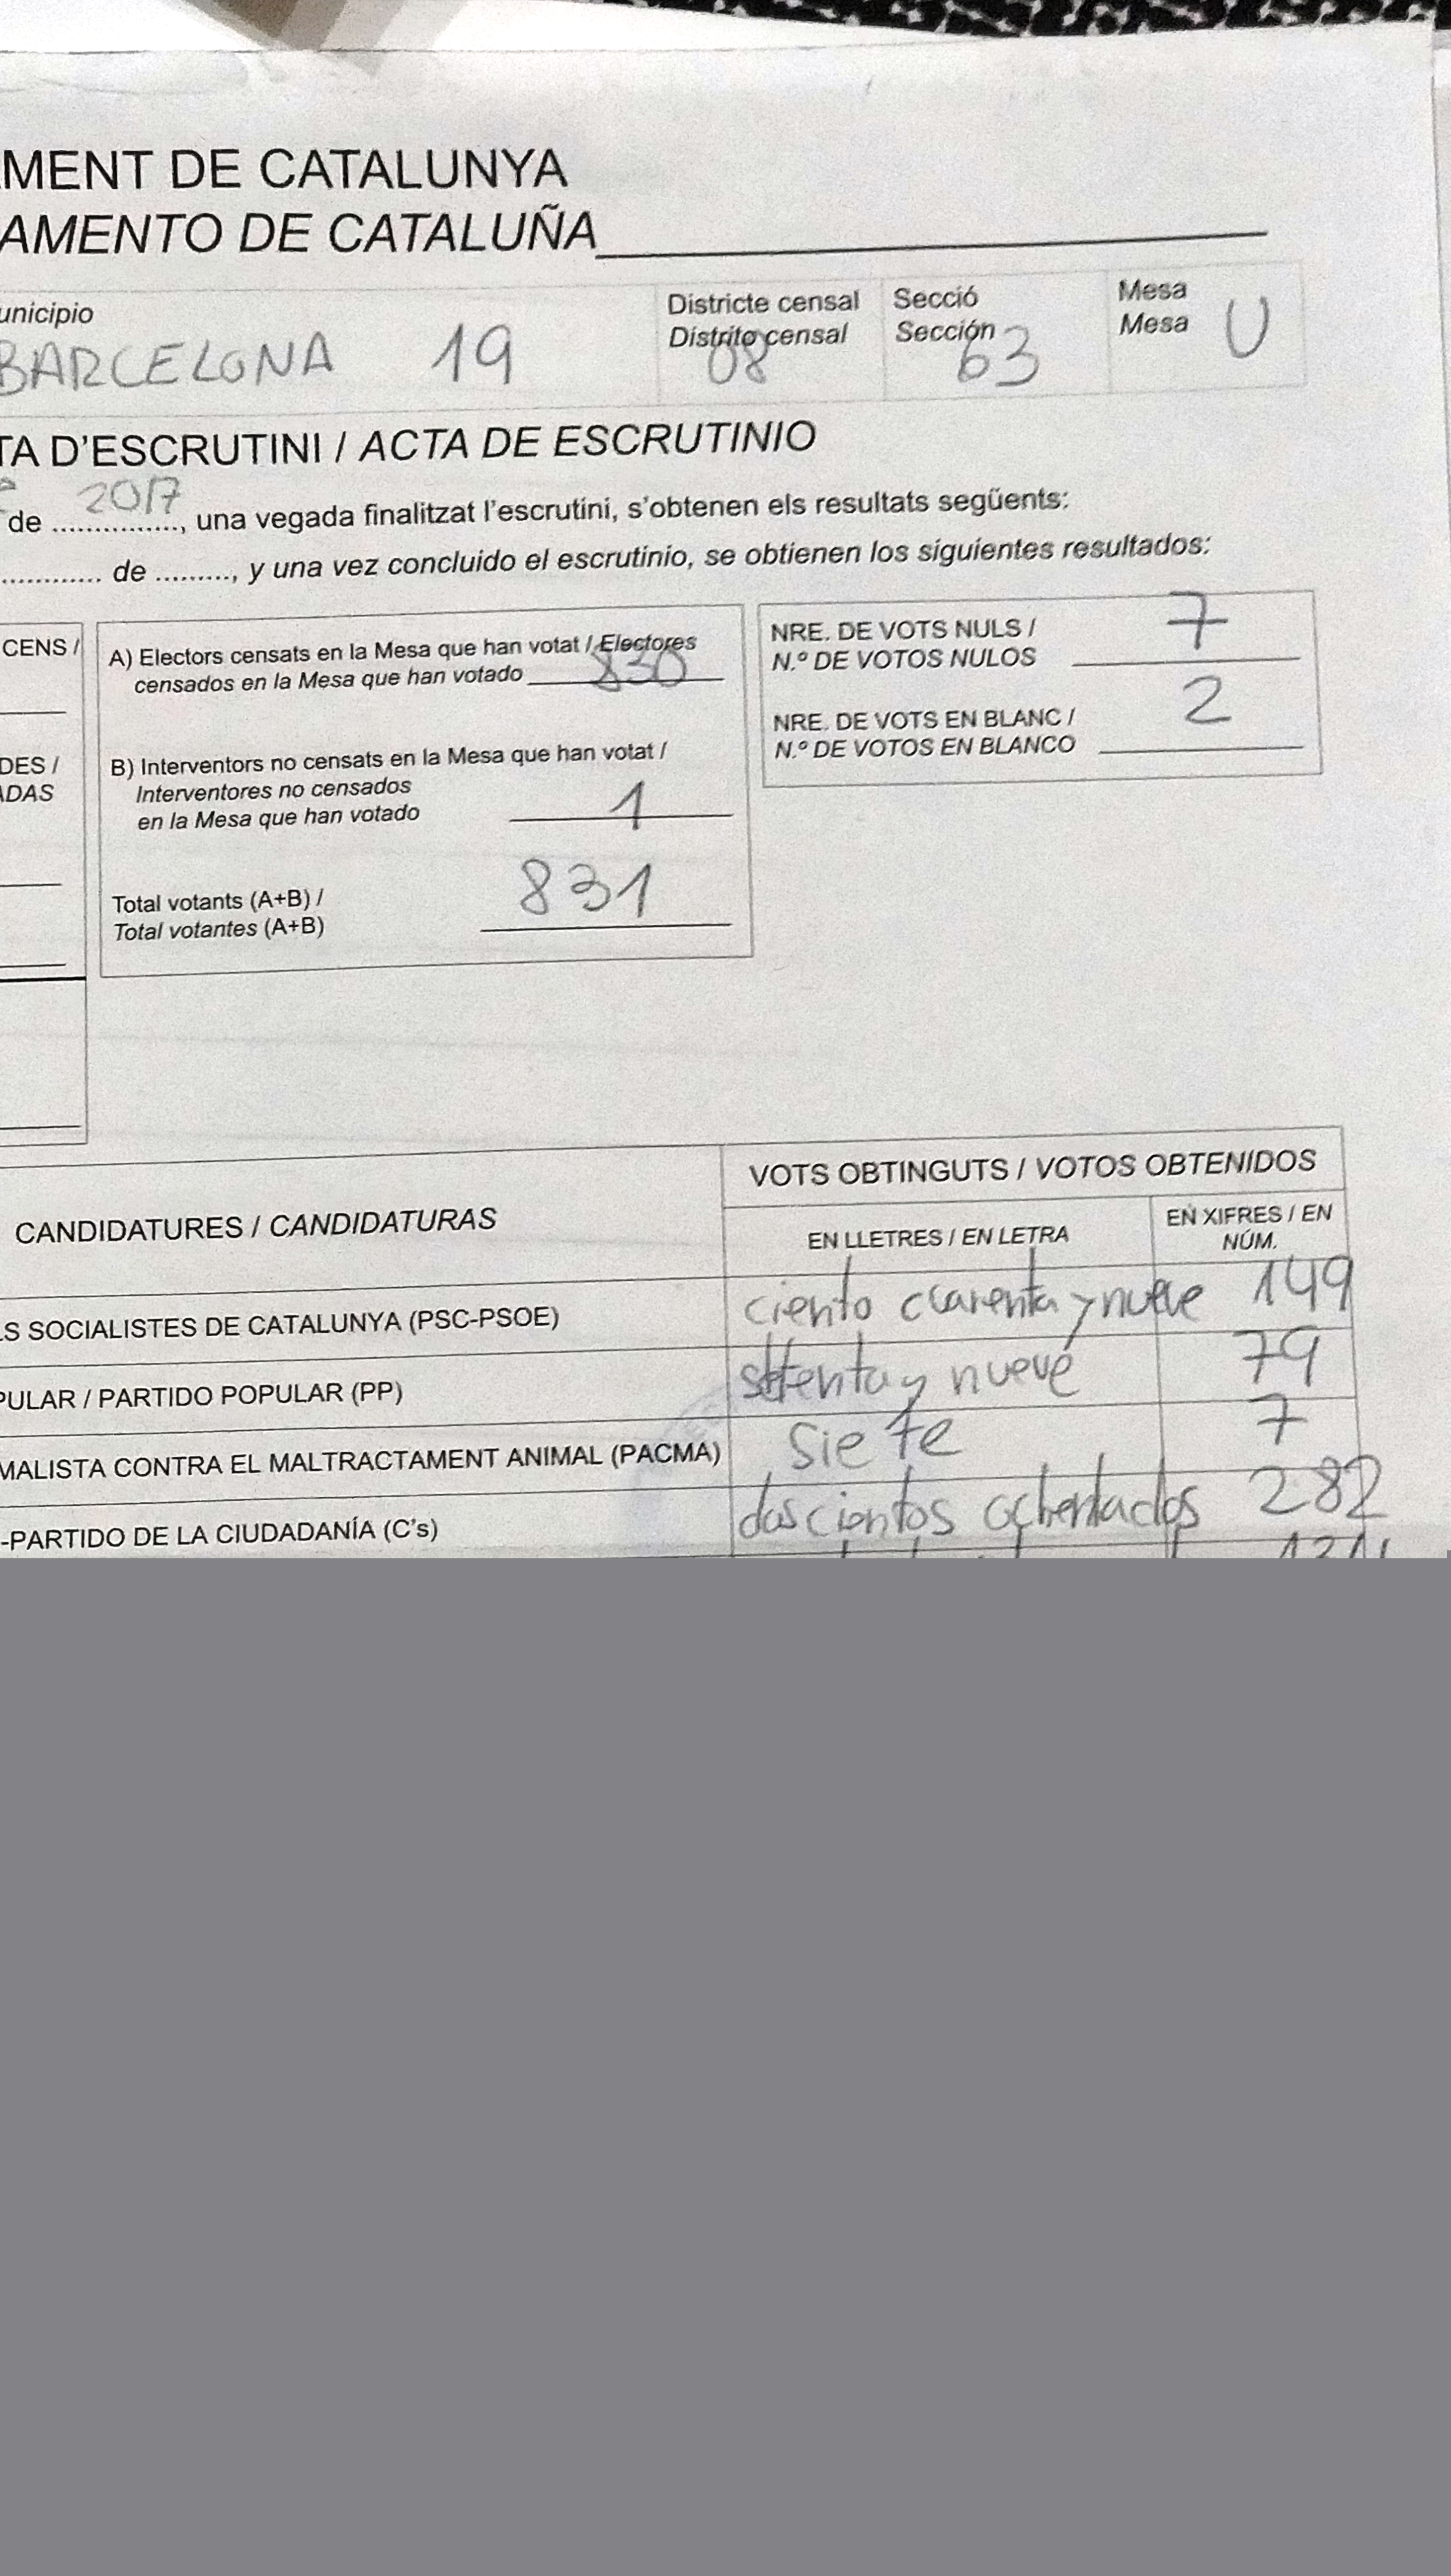 MENT DE CATALUNYA
AMENTO DE CATALUÑA
unicipio
BARCELONA 19
Districte censal
Distrito censal
08
Secció
Sección
63
Mesa
Mesa
U
TA D'ESCRUTINI / ACTA DE ESCRUTINIO
de 2017, una vegada finalitzat l'escrutini, s'obtenen els resultats següents:
............ de ........., y una vez concluido el escrutinio, se obtienen los siguientes resultados:
CENS /
DES /
ADAS
A) Electors censats en la Mesa que han votat / Electores
censados en la Mesa que han votado 830
B) Interventors no censats en la Mesa que han votat /
Interventores no censados
en la Mesa que han votado 1
Total votants (A+B) /
Total votantes (A+B) 831
NRE. DE VOTS NULS /
N.º DE VOTOS NULOS 7
NRE. DE VOTS EN BLANC /
N.º DE VOTOS EN BLANCO 2
CANDIDATURES / CANDIDATURAS
VOTS OBTINGUTS / VOTOS OBTENIDOS
EN LLETRES / EN LETRA
EN XIFRES / EN
NÚM.
LS SOCIALISTES DE CATALUNYA (PSC-PSOE) ciento cuarenta y nueve 149
PULAR / PARTIDO POPULAR (PP) setenta y nueve 79
MALISTA CONTRA EL MALTRACTAMENT ANIMAL (PACMA) siete 7
-PARTIDO DE LA CIUDADANÍA (C's) doscientos ochentados 282